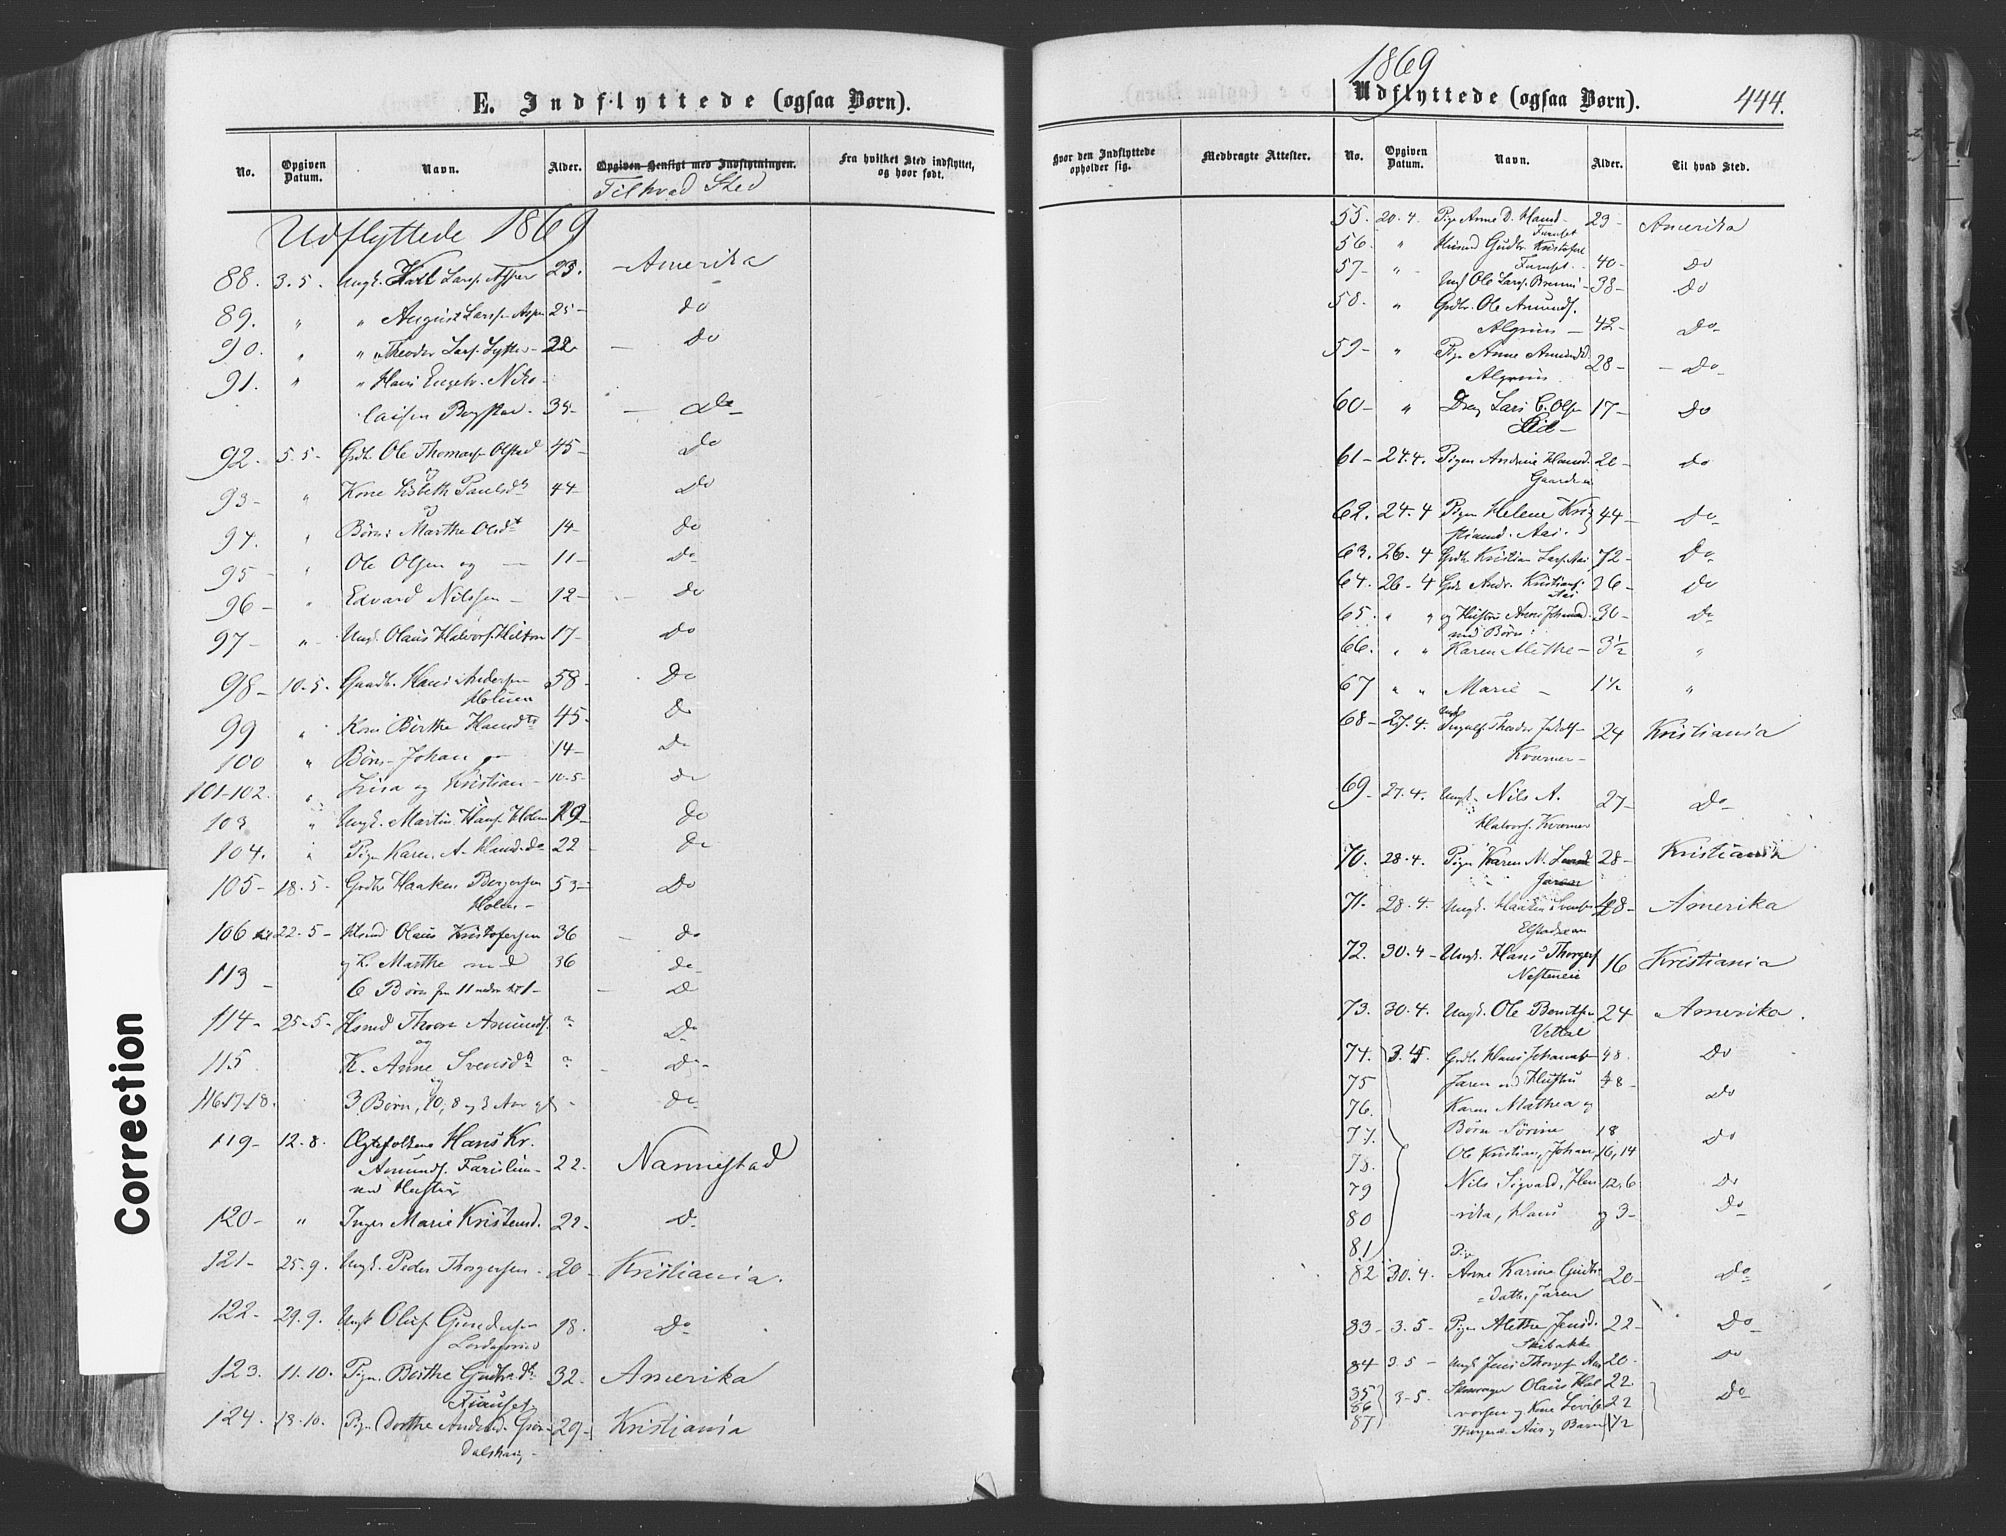 E. Indflyttede (ogsaa Børn).
No. Opgiven Datum. Navn. Alder. Opgiven Hensigt med Indflytningen. Fra hvilket Sted indflyttet, og hvor født.
Til hvad Sted
Udflyttede 1869
88. 3.5. Ungk. Karl Lars. 23. Amerika
89. " " August Larss. 25 - Do
90. " " Theodor Lars. 22 - Do
91. " " Hans Engebr. Niko-
laisen 35 - Do
92. 5.5 - Grdb. Ole Thomass. Olstad 45 - Do
og
93 - " Kone Lisbeth Paulsdr 44 - Do
og
94. " Børn: Marthe Olsdr 14 - Do
95 - " Ole Olsen og 11 - Do
96 - " Edvard Nilssen - 12 - Do
97 - " Ungk. Olaus Halvors. Hilton 17 - Do
98 - 10.5. Gaardb. Hans Anderssen 58 - Do
Holmen
99 " Kone Birthe Hansdtr 45 - Do
100 " Børn Johan 14 - Do
101-102. " Lisa og Kristian - 10.5 - Do
103 " Ungk. Martin Hans. Holm 19 - Do
104. " Pige Karen A. Hansd. 22 - Do
105 - 18.5 - Grdb. Haaken Bergersen 53 - Do
Holm -
106 til 22.5 - Hsmd Olaus Kristofersen 36 - Do
113 - og K. Marthe med 36 Do
6 Børn fra 11 - 1 - Do
114 - 25.5 - Hsmd Amunds. " Do
og
115 K. Anne Svensdr " Do
og
116.17.18. 3 Børn, 10, 8 og 3 Aar - Do
119 - 12.8. Ægtefolkene Hans Kr.
Amunds. 22 - Nannestad
med Hustru
120 - " Inger Marie Kristensd. 22 - Do
121 - 25.9. Ungk. Peder Thorgersen - 20 - Kristiania.
122 - 29.9. Ungk Oluf Gundersen 18. Do
123. 11.10. Pige Berthe Gudbr.dr 32. Amerika
124. 13.10. Pige Dorthe Andersd. 29 - Kristiania
1869
Udflyttede (ogsaa Børn). 444.
Hvor den Indflyttede opholder sig. Medbragte Attester. No. Opgiven Datum. Navn. Alder. Til hvad Sted.
55. 20.4. Pige Anne D. Hansd - 23 - Amerika
Furuset
56. " Husmd Gudbr. Kristofers.
57 - " Furuset - 40 - Do
Ungk Ole Lars. 38 - Do
58. " Grdbr. Ole Amunds.
Algrim - 42 - Do
59 - " Pige Anne Amundsd. 28 - Do
Algrim
60 - " Dreng Lars C. Olsen 17 - Do
61 - 24.4. Pigen Andrine Hansd. 20 - Do
Gaarder
62. 24.4 Pigen Helene Kri- 44 - Do
stiansd. Aas.
63. 26.4 Grdb. Kristian Lars. Aas 72 - Do
64. 26.4 Grdb. Andr. Kristians. 26 - Do
Aas
65. " " og Hustru Anne Johansd. 30 - Do
med Børn:
66. " " Karen Alethe - 3½ "
67 " " Marie - 1½ "
68 - 27.4. Theodor 24 Kristiania
Kværner -
69. 27.4. Ungk. Nils A. 27 - Do
Halvors. Kværner
70. 28.4. Pige Karen M. 28 - Kristiania
Jaren
71. 28.4. Ungk. Haaken Svens. 48 - Amerika
72. 30.4 - Ungk. Hans Thorgers 16 Kristiania
73. 30.4. Ungk. Ole Berntsen 24 Amerika.
74. 3.5. Grdb. Hans Johannes. 48. Do
75 Jaren med Hustru 48 -
76. Karen Mathea og Do
77. Børn Sørine 18
78. Ole Kristian, Johan, 16, 14 Do
79 Nils Sigvard, Hen- 12, 6 Do
80 rika, Hans og 3 - Do
81
82 30.4. Anne Karine Gudbr. 20 - Do
datter, Jaren
83 - 3.5 - Pige Alethe Jensd. 22 - Do
Skibakke
84 3.5 - Ungk Jens Thorgs. 20. Do
85 Olaus Hal 22
86 3.5. vorsen og Kone Lovise 22 Do
87 Aas og Barn 1/2
Correction